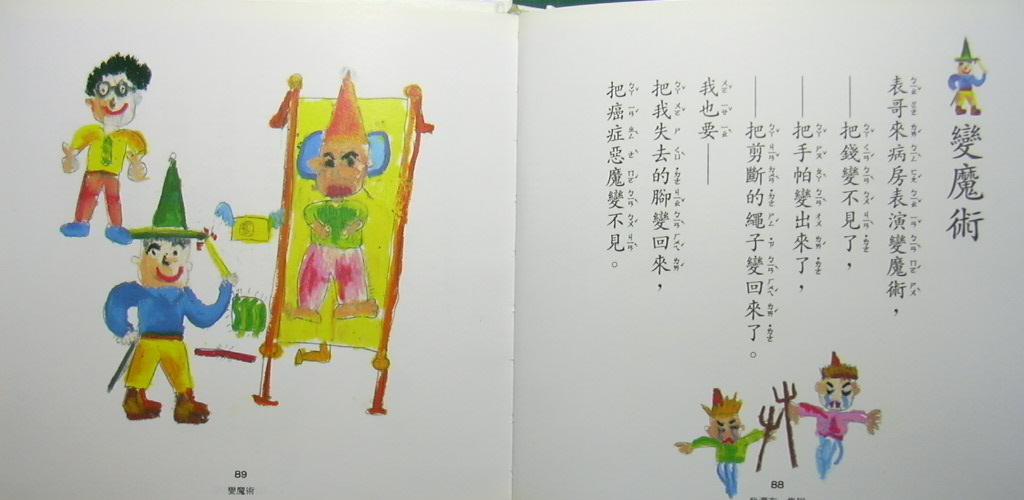 變魔術
表哥來病房表演變魔術，
——把錢變不見了，
——把手帕變出來了，
——把剪斷的繩子變回來了。
我也要——
把我失去的腳變回來，
把癌症惡魔變不見。
88
89
變魔術